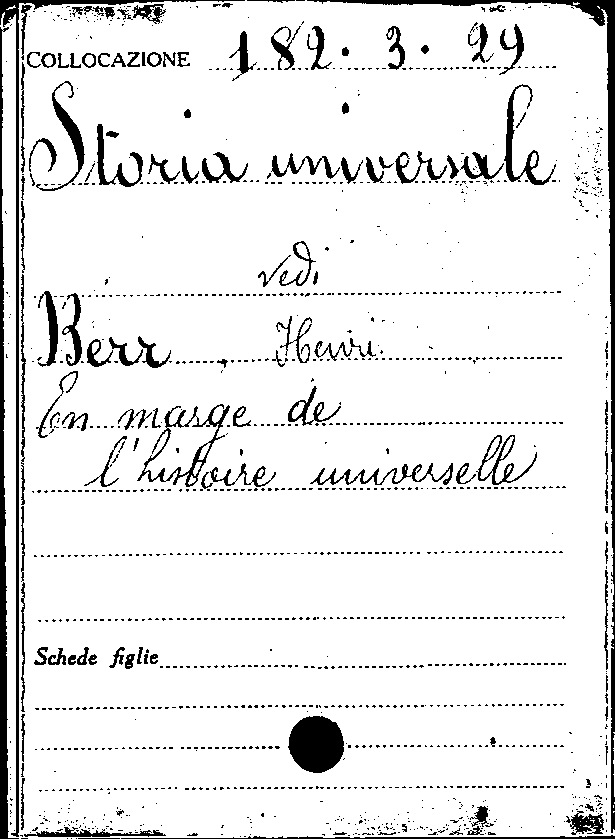 COLLOCAZIONE 182. 3. 29
Storia universale
vedi
Berr, Henri
En marge de
l'histoire universelle
Schede figlie